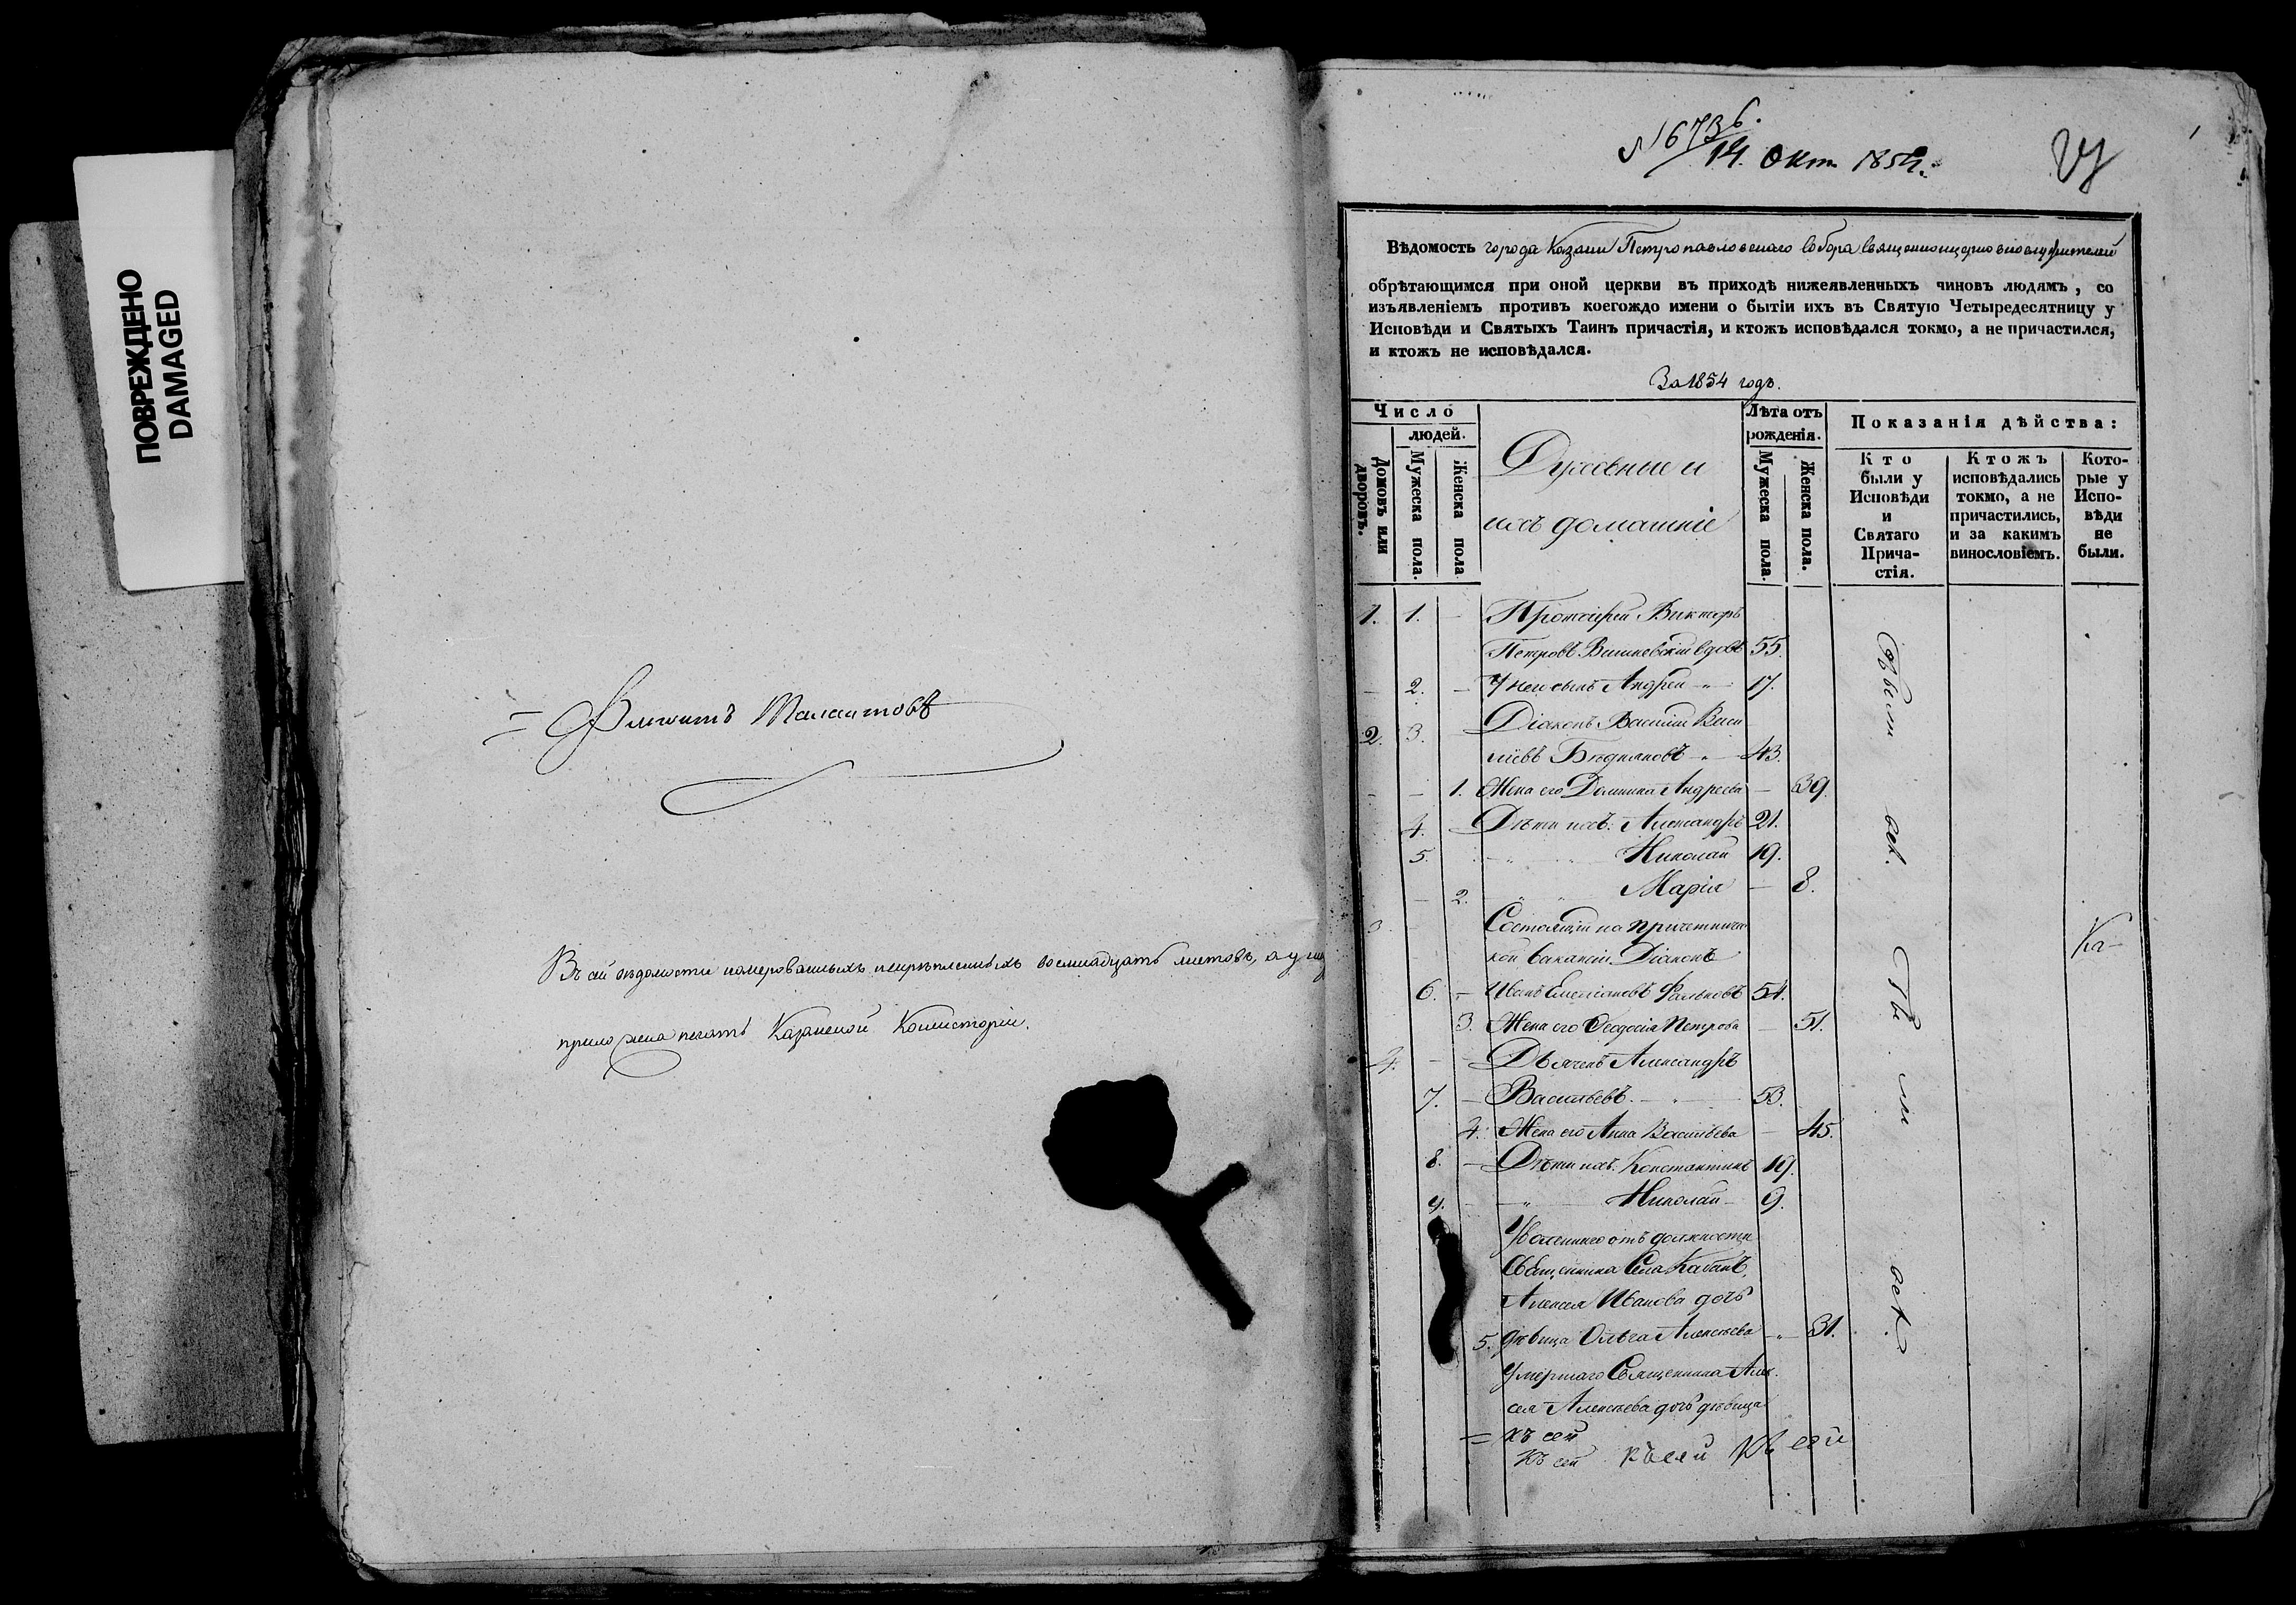 ПОВРЕЖДЕНО
DAMAGED
Въ сей ведомости номерованныхъ и скрѣпленныхъ восемнадцать листовъ, а у
приложена печать Казанской Консисторіи.
№ 6736.
14. Окт 1854.
Вѣдомость города Казани Петропавловскаго Собора священноцерковнослужителей
обрѣтающимся при оной церкви въ приходѣ нижеявленныхъ чиновъ людямъ, со
изъявленіемъ противъ коегождо имени о бытіи ихъ въ Святую Четыредесятницу у
Исповѣди и Святыхъ Таинъ причастія, и ктожъ исповѣдался токмо, а не причастился,
и ктожъ не исповѣдался.
За 1854 годъ.
Число
людей.
Домовъ или дворовъ.
Мужеска пола.
Женска пола
Духовные и
ихъ домашніе
Лѣта отъ
рожденія.
Мужеска пола.
Женска пола.
Показанія дѣйства:
Кто
были у
Исповѣди
и
Святаго
Прича-
стія.
Ктожъ
исповѣдались
токмо, а не
причастились,
и за какимъ
винословіемъ.
Кото-
рые у
Испо-
вѣди
не
были.
1. 1. — Протоіерей Викторъ
Петровъ Вишневскій вдовъ 55.
— 2. — У него сынъ Андрей — 17.
2. 3. Діаконъ Василій Васи
льевъ Бѣдняковъ — 43.
— — 1. Жена его Домника Андреева — 39.
4. — Дѣти ихъ: Александръ 21.
5. Николай 19.
— 2. Марія — 8.
3 Состоящій на причетниче
кой вакансіи Діаконъ
6. — Иванъ Фальковъ 54.
3. Жена его Ѳеодосія Петрова — 51.
4. — — Дьячекъ Александръ
7. — Васильевъ. — 53.
4. Жена его Анна Васильева — 45.
8. — Дѣти ихъ: Константинъ 19.
9. — Николай — 9.
Уволеннаго отъ должности
Священника Села Кабанъ,
Алексея Иванова дочь
5. дѣвица Ольга Алексѣева — 31.
Умершаго Священника Алек
сея Алексѣева дочь дѣвица
Ка-
= къ сей
Къ сей къ сей Къ сей